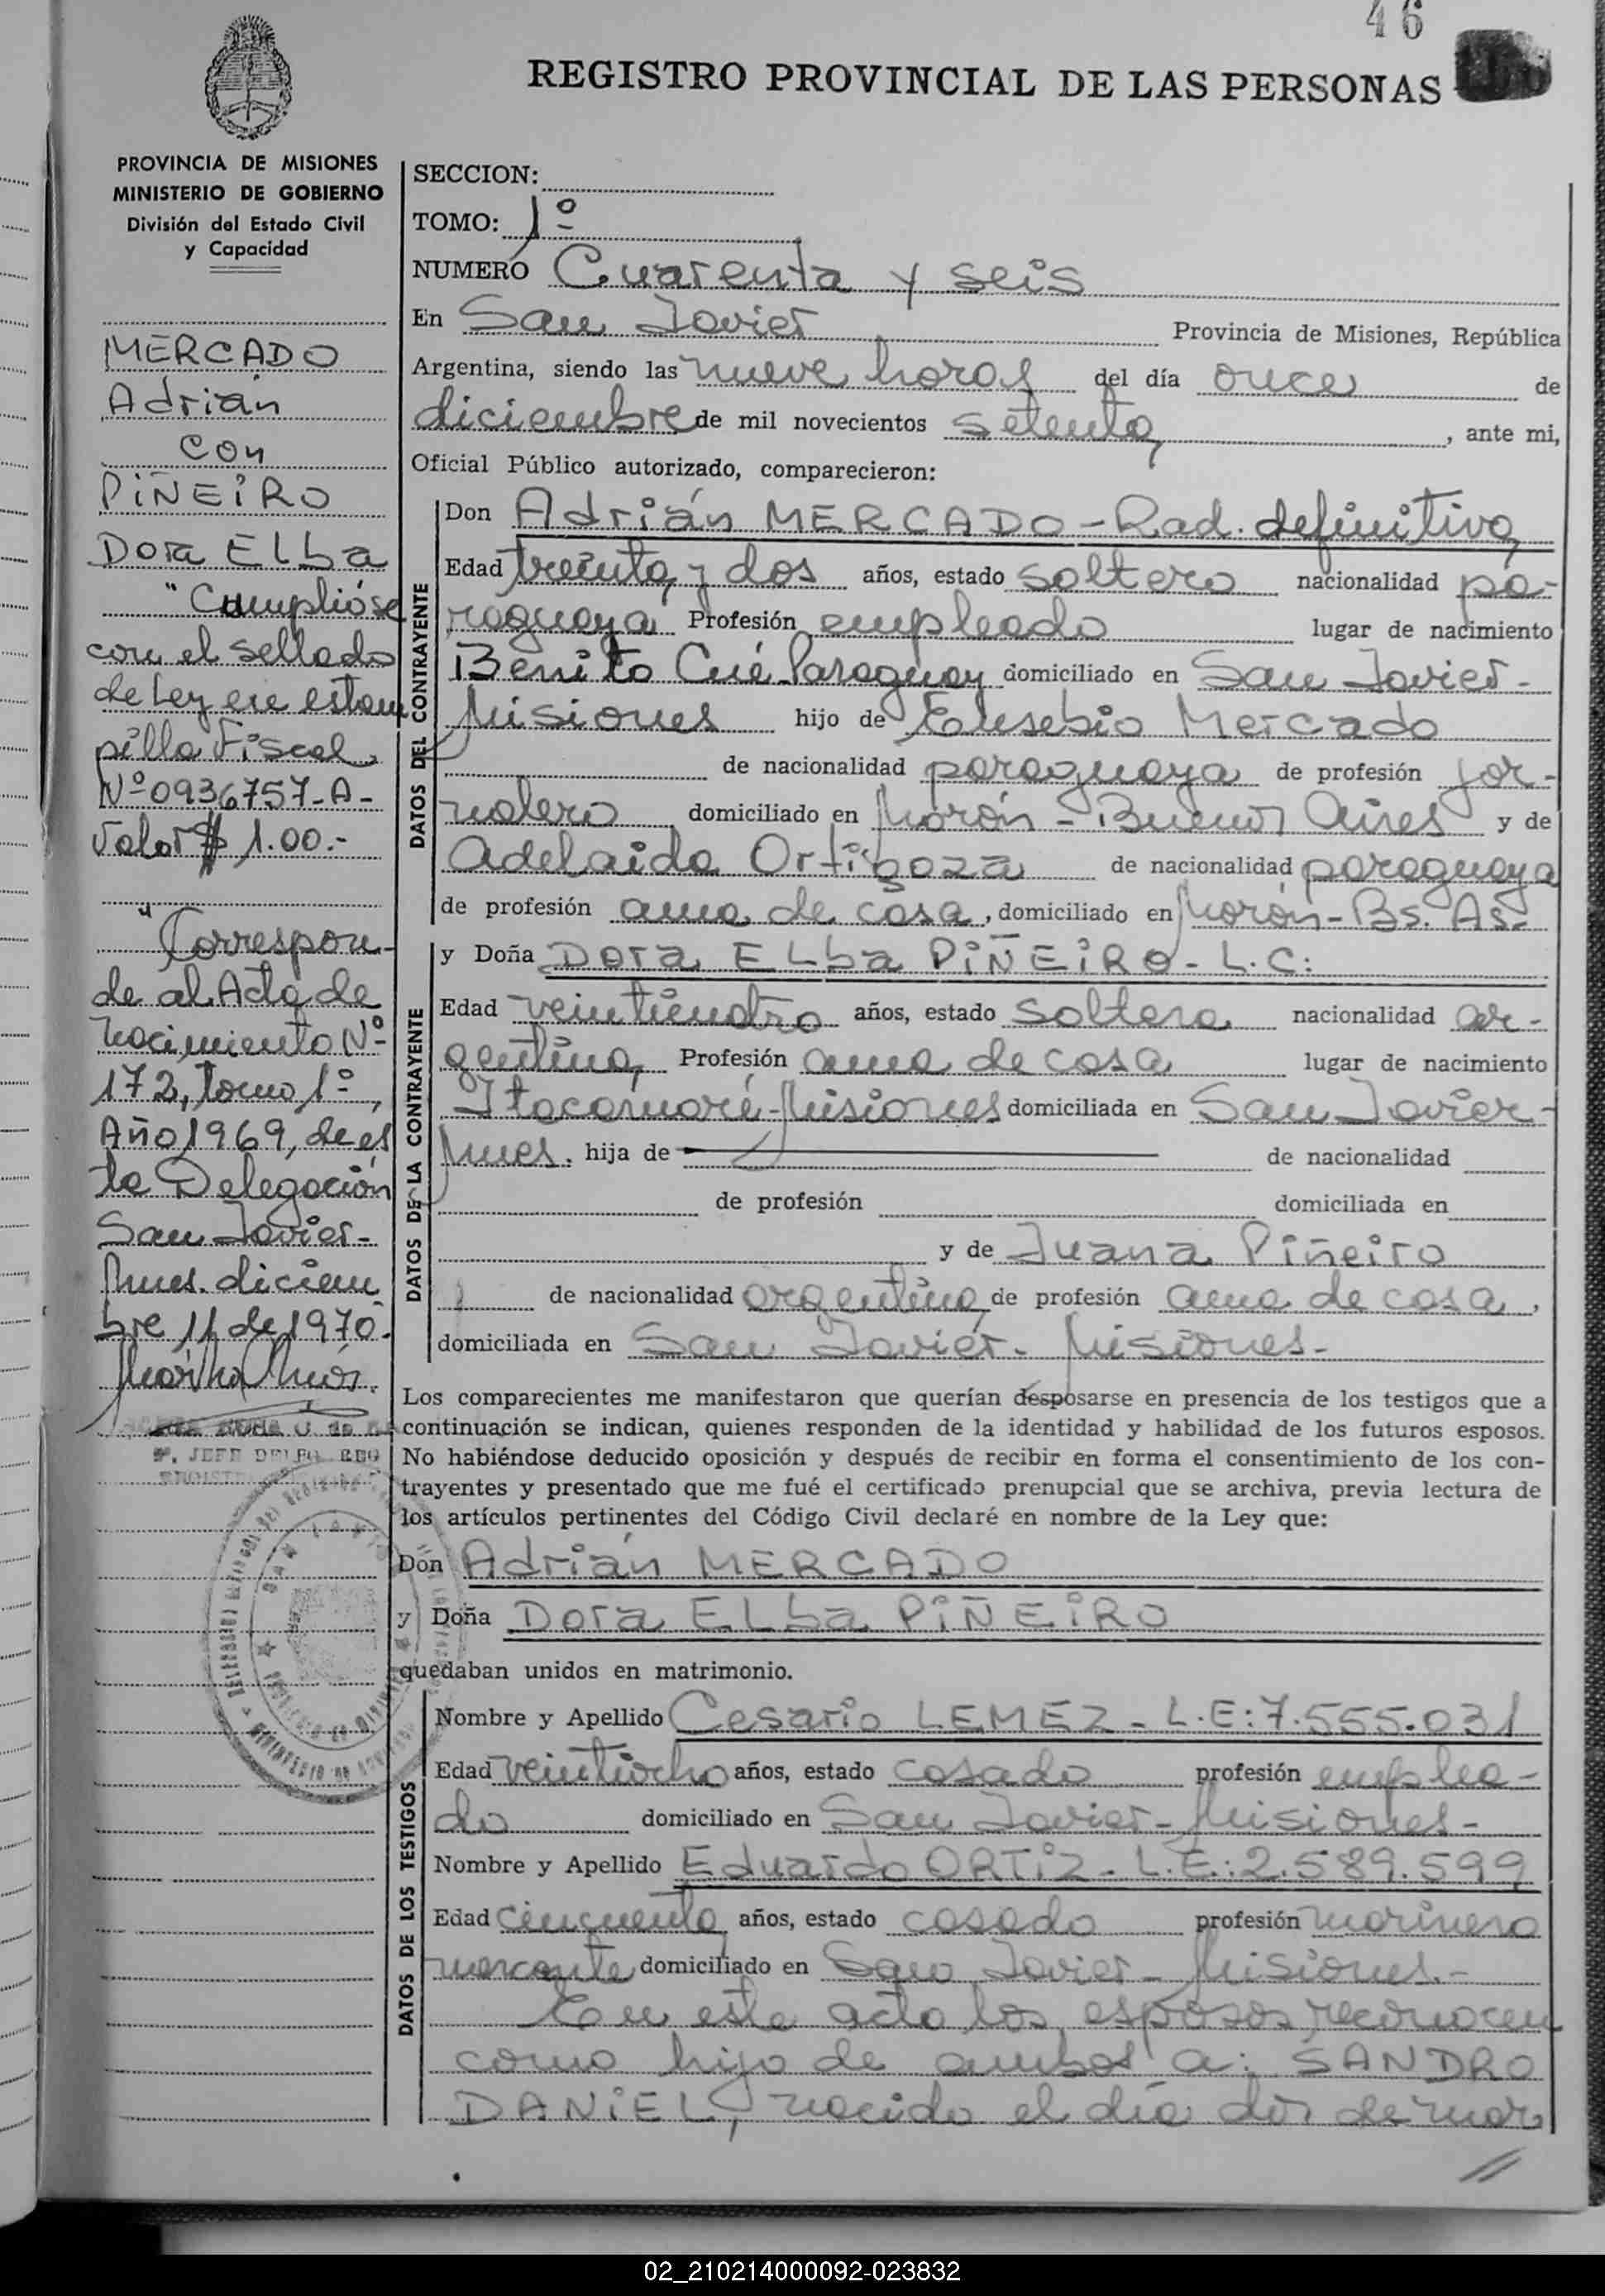 46
REGISTRO PROVINCIAL DE LAS PERSONAS
PROVINCIA DE MISIONES
MINISTERIO DE GOBIERNO
División del Estado Civil
y Capacidad
MERCADO
Adrián
con
PIÑEIRO
Dora Elba
"Cumplióse
con el sellado
de Ley en estam
pilla Fiscal
Nº 0936757-A-
Valor $ 1.00.-
"Correspon-
de al Acta de
nacimiento Nº
172, tomo 1º,
Año 1969, de es
ta Delegación
San Javier-
Mnes. diciem
bre 11 de 1970.
SECCION:
TOMO: 1º
NUMERO Cuarenta y seis
En San Javier Provincia de Misiones, República
Argentina, siendo las nueve horas del día once de
diciembre de mil novecientos setenta, ante mi,
Oficial Público autorizado, comparecieron:
DATOS DEL CONTRAYENTE
Don Adrián MERCADO - Rad. definitiva
Edad treinta y dos años, estado soltero nacionalidad pa-
raguaya Profesión empleado lugar de nacimiento
Benito Cué Paraguay domiciliado en San Javier-
Misiones hijo de Eusebio Mercado
de nacionalidad paraguaya de profesión jor-
nalero domiciliado en Morón - Buenos Aires y de
Adelaida Ortigoza de nacionalidad paraguaya
de profesión ama de casa, domiciliado en Morón - Bs. As-
DATOS DE LA CONTRAYENTE
y Doña Dora Elba PIÑEIRO - L.C:
Edad veinticuatro años, estado soltera nacionalidad ar-
gentina, Profesión ama de casa lugar de nacimiento
Itacaruaré-Misiones domiciliada en San Javier-
Mnes. hija de de nacionalidad
de profesión domiciliada en
y de Juana Piñeiro
de nacionalidad argentina, de profesión ama de casa,
domiciliada en San Javier- Misiones-
Los comparecientes me manifestaron que querían desposarse en presencia de los testigos que a
continuación se indican, quienes responden de la identidad y habilidad de los futuros esposos.
No habiéndose deducido oposición y después de recibir en forma el consentimiento de los con-
trayentes y presentado que me fué el certificado prenupcial que se archiva, previa lectura de
los artículos pertinentes del Código Civil declaré en nombre de la Ley que:
Don Adrián MERCADO
y Doña Dora Elba PIÑEIRO
quedaban unidos en matrimonio.
DATOS DE LOS TESTIGOS
Nombre y Apellido Cesario LEMEZ - L.E: 7.555.031
Edad veintiocho años, estado casado profesión emplea-
do domiciliado en San Javier- Misiones-
Nombre y Apellido Eduardo ORTIZ - L.E.: 2.589.599
Edad cincuenta años, estado casado profesión marinero
mercante domiciliado en San Javier- Misiones.-
En este acto los esposos reconocen
como hijo de ambos a: SANDRO
DANIEL, nacido el día dos de mar
02_210214000092-023832